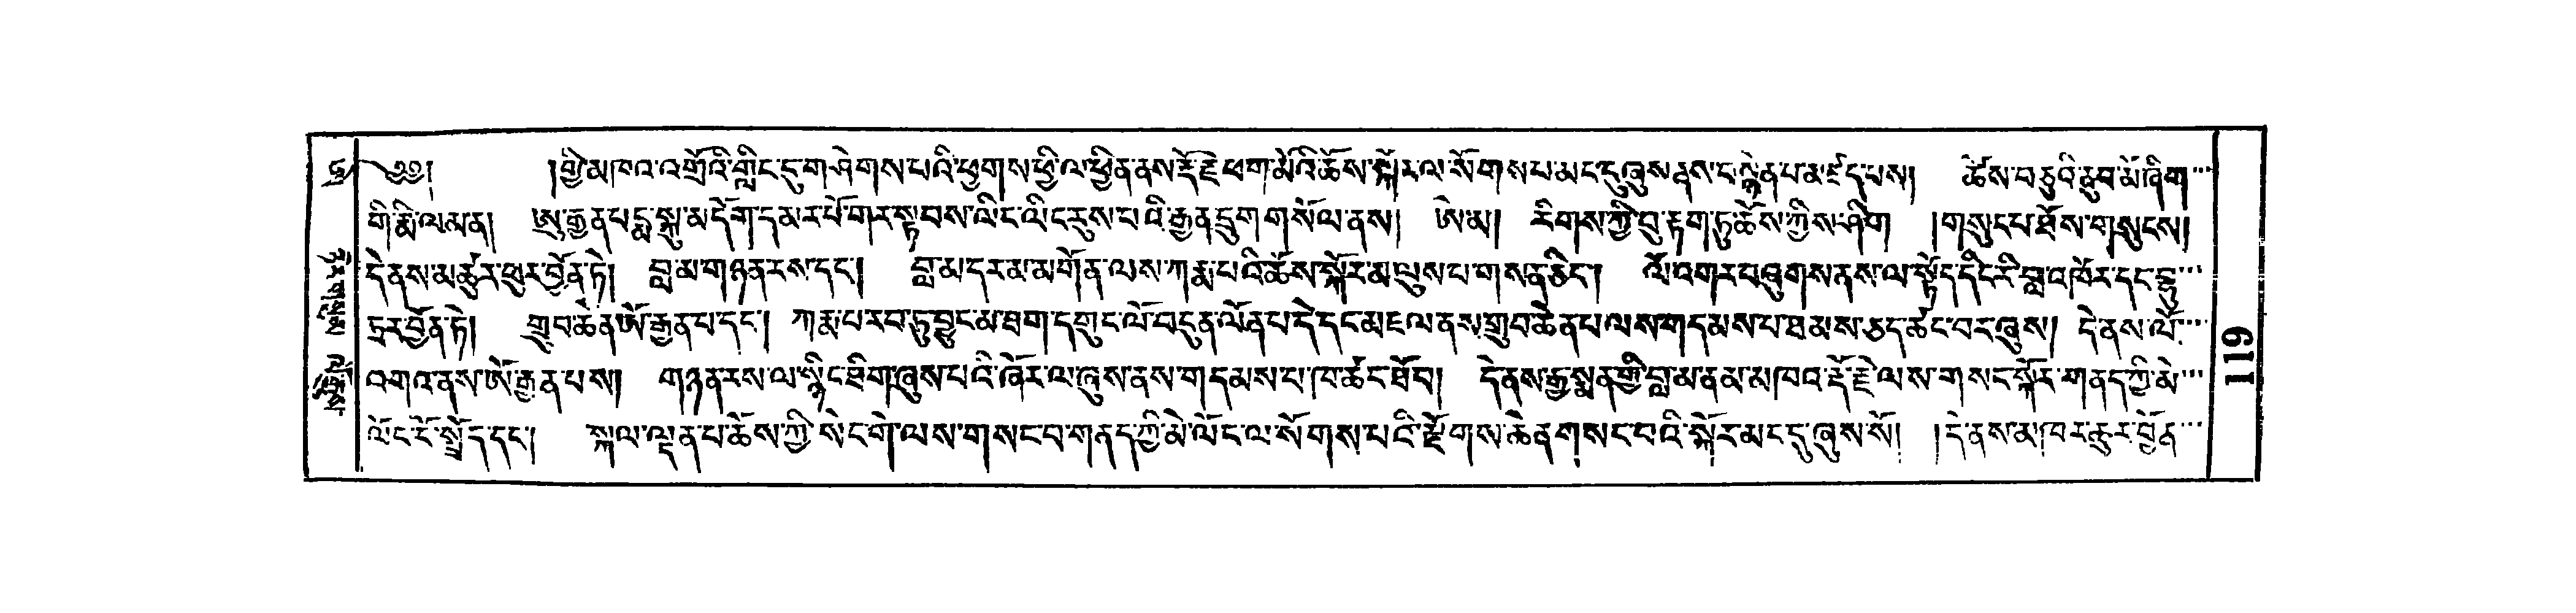 ༄༅། །གྱི་མཁའ་འགྲོའི་གླིང་དུ་གཤེགས་པའི་ཕྱགས་ཕྱི་ལ་ཕྱིན་ནས་རྡོ་རྗེ་ཕག་མོའི་ཆོས་སྐོར་ལ་སོགས་པ་མང་དུ་ཞུས་ནས་ང་སྙེན་པ་མཛད་པས། ཚེས་བཅུའི་ནུབ་མོ་ཞིག་
གི་རྨི་ལམ་ན། ཨུ་རྒྱན་པདྨ་སྐུ་མདོག་དམར་པོ་གར་སྟབས་ལིང་ལིང་རུས་པའི་རྒྱན་དྲུག་གསོལ་ནས། ཨེ་མ། རིགས་ཀྱི་བུ་རྟག་ཏུ་ཆོས་ཀྱིས་ཤིག །གསུང་པ་ཐོས་གསུངས།
དེ་ནས་མཚུར་ཕུར་བྱོན་ཏེ། བླ་མ་གཉན་རས་དང་། བླ་མ་དར་མ་མགོན་ལས་ཀརྨ་པའི་ཆོས་སྐོར་མ་ལུས་པ་གསན་ཅིང་། ལོ་འགར་བཞུགས་ནས་ལ་སྟོད་དིང་རི་བླ་འཁོར་དང་དྷུ་
ཏྲར་བྱོན་ཏེ། གྲུབ་ཆེན་ཨོ་རྒྱན་པ་དང་། ཀརྨ་པ་རབ་ཏུ་བྱུང་མ་ཐག་དགུང་ལོ་བདུན་ལོན་པ་དེ་དང་མཇལ་ནས་གྲུབ་ཆེན་པ་ལས་གདམས་པ་ཐམས་ཅད་ཚང་བར་ཞུས། དེ་ནས་ལོ་
འགའ་ནས་ཨོ་རྒྱན་པས། གཉན་རས་ལ་སྙིང་ཐིག་ཞུས་པའི་ཞོར་ལ་ཞུས་ནས་གདམས་པ་ཁ་ཚང་ཐོབ། དེ་ནས་རྒྱ་སྨན་གྱི་བླ་མ་ནམ་མཁའ་རྡོ་རྗེ་ལས་གསང་སྐོར་གནད་ཀྱི་མེ་
ལོང་ངོ་སྤྲོད་དང་། སྐལ་ལྡན་པ་ཆོས་ཀྱི་སེང་གེ་ལས་གསང་བ་གནད་ཀྱི་མེ་ལོང་ལ་སོགས་པའི་རྫོགས་ཆེན་གསང་བའི་སྐོར་མང་དུ་ཞུས་སོ། །དེ་ནས་མཁར་ཆུར་བྱོན་
119